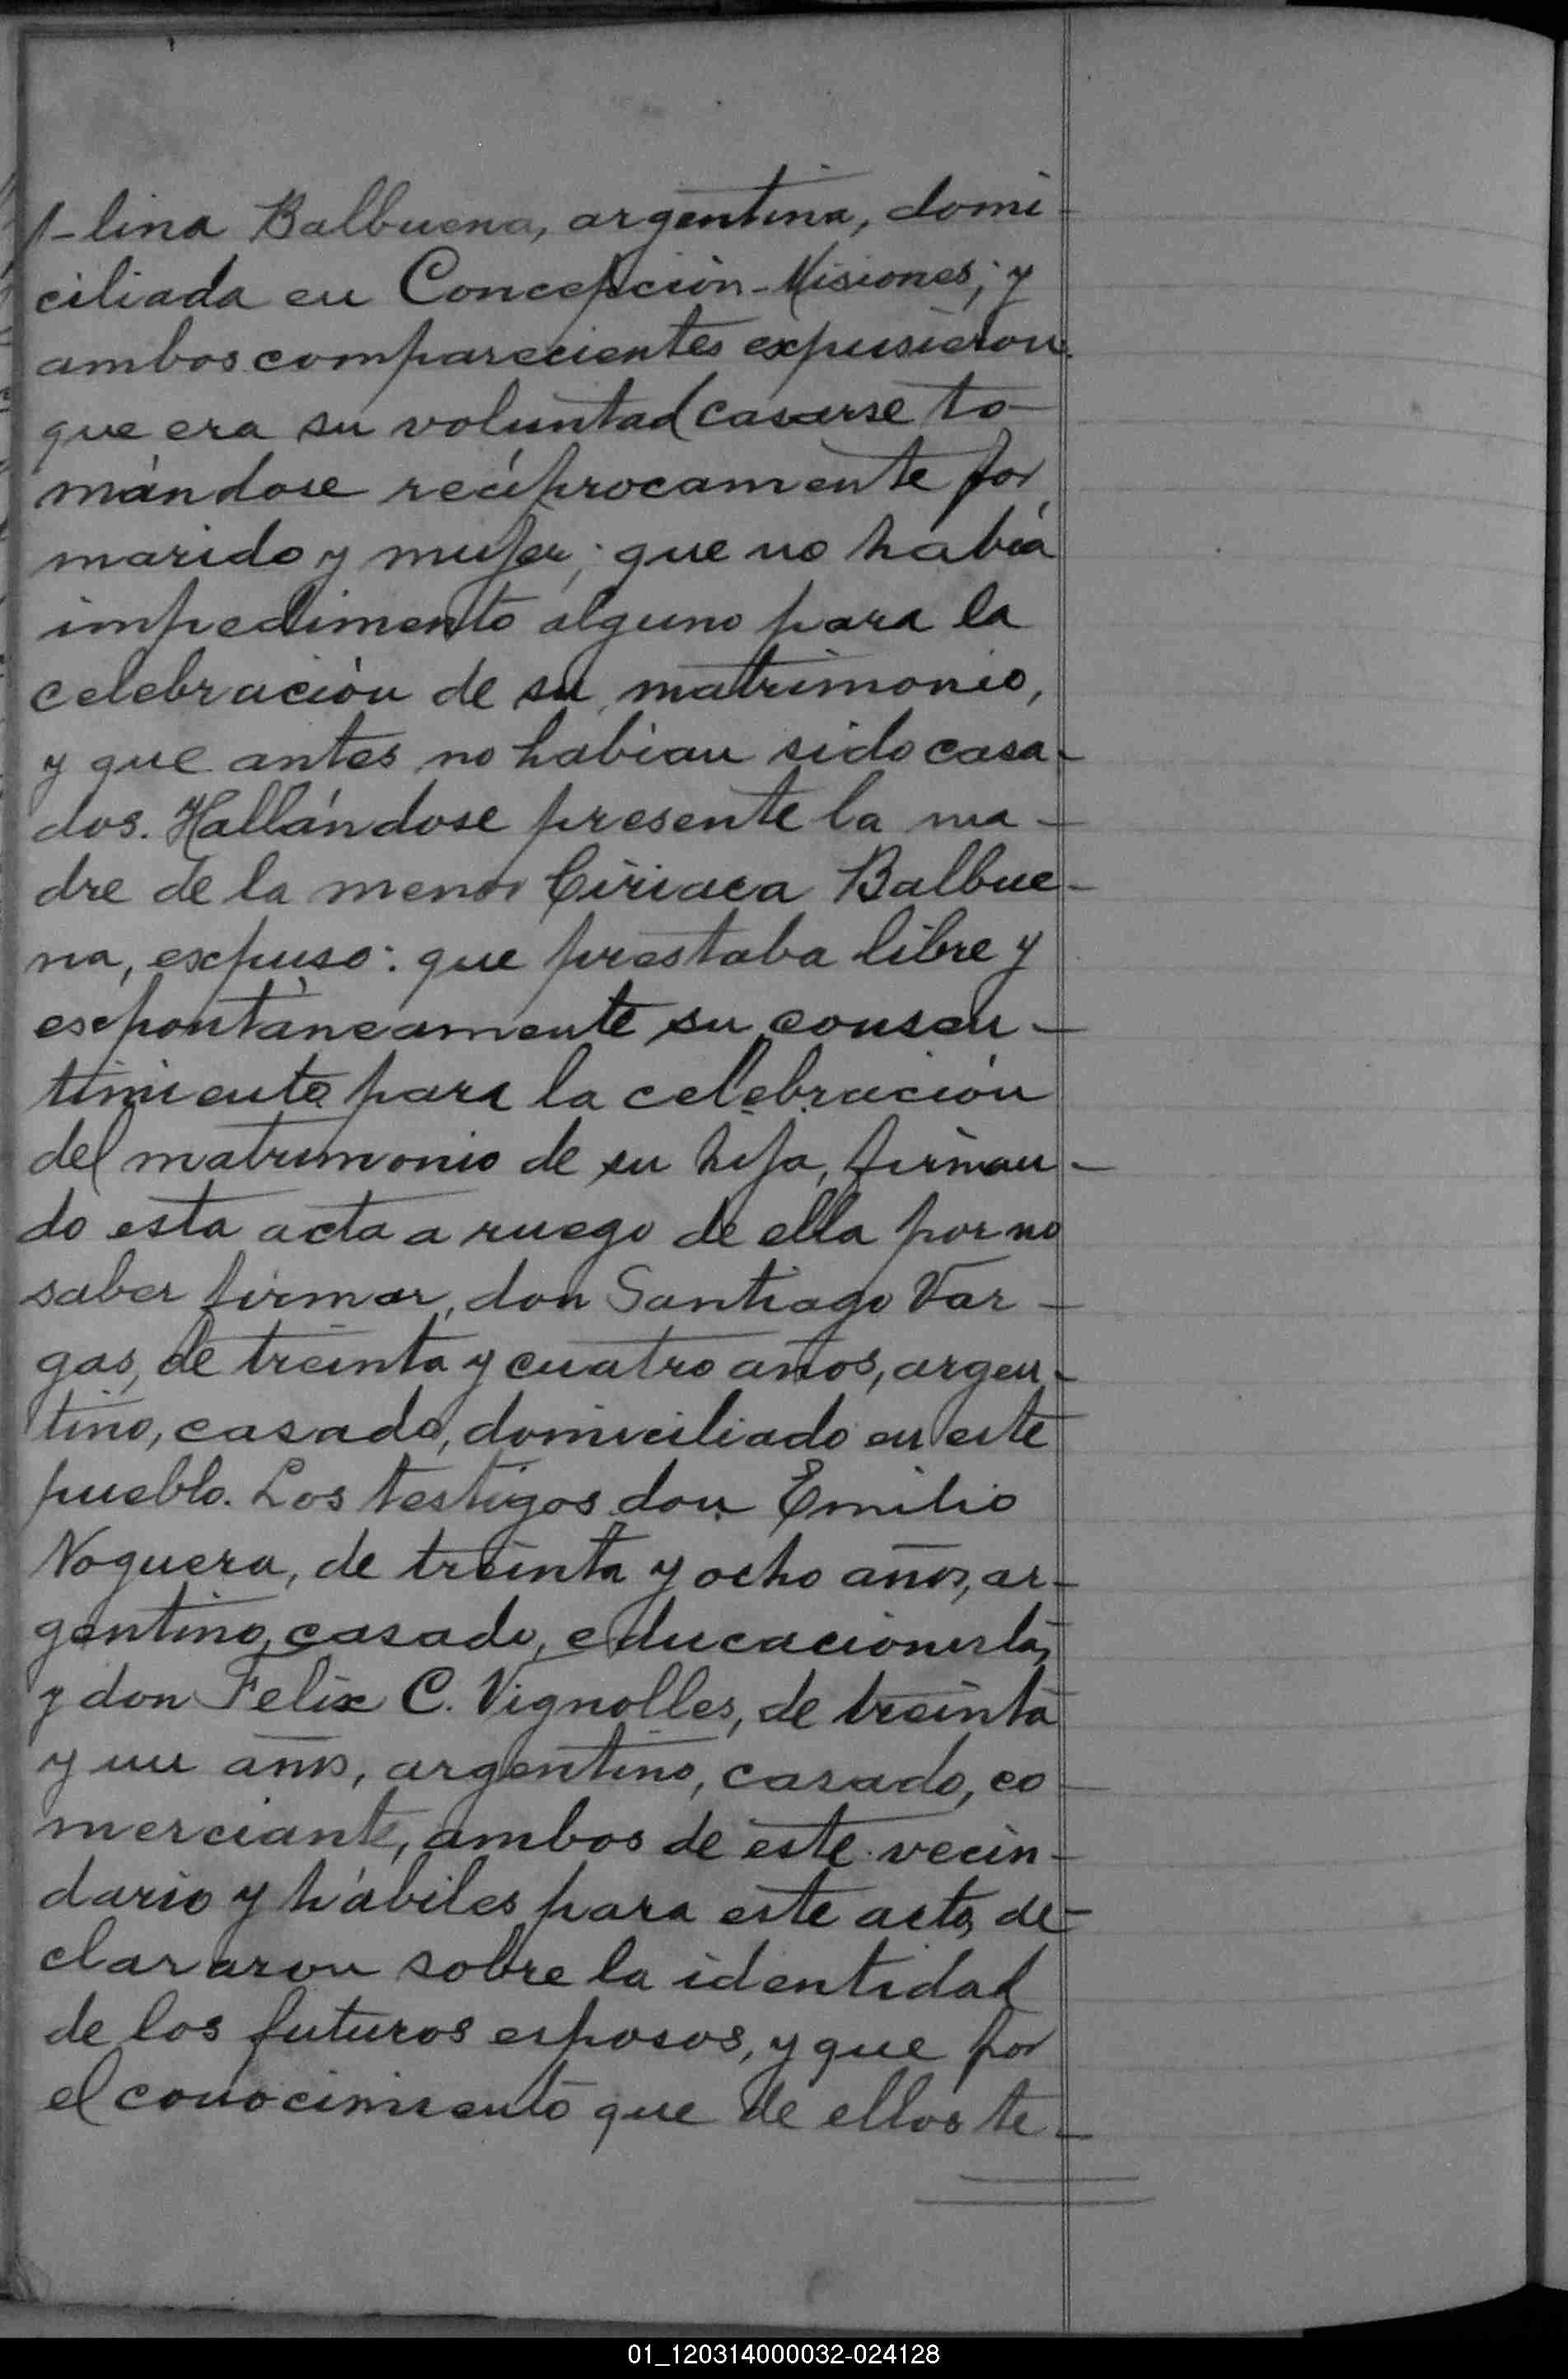 -lina Balbuena, argentina, domi-
ciliada en Concepción-Misiones; y
ambos comparecientes expusieron
que era su voluntad casarse to-
mándose recíprocamente por
marido y mujer; que no había
impedimento alguno para la
celebración de su matrimonio,
y que antes no habían sido casa-
dos. Hallándose presente la ma-
dre de la menor Ciriaca Balbue-
na, expuso: que prestaba libre y
espontáneamente su consen-
timiento para la celebración
del matrimonio de su hija, firman-
do esta acta a ruego de ella por no
saber firmar, don Santiago Var-
gas, de treinta y cuatro años, argen-
tino, casado, domiciliado en este
pueblo. Los testigos don Emilio
Noguera, de treinta y ocho años, ar-
gentino, casado, educacionista,
y don Felix C. Vignolles, de treinta
y un años, argentino, casado, co-
merciante, ambos de este vecin-
dario y hábiles para este acto, de-
clararon sobre la identidad
de los futuros esposos, y que por
el conocimiento que de ellos te-
01_120314000032-024128